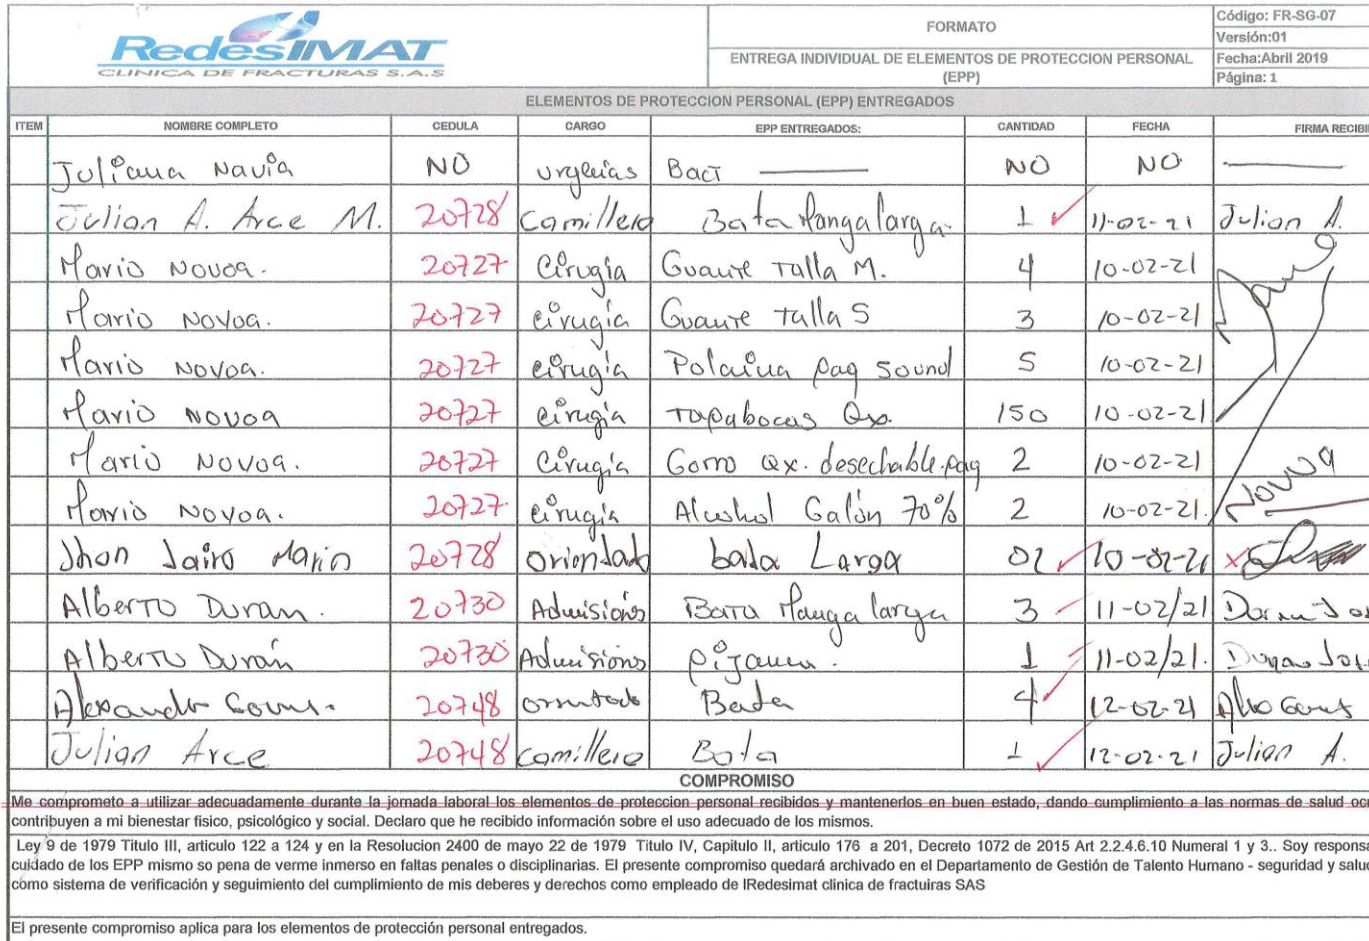 RedesIMAT
CLINICA DE FRACTURAS S.A.S
FORMATO
ENTREGA INDIVIDUAL DE ELEMENTOS DE PROTECCION PERSONAL (EPP)
Código: FR-SG-07
Versión:01
Fecha:Abril 2019
Página: 1
ELEMENTOS DE PROTECCION PERSONAL (EPP) ENTREGADOS
ITEM NOMBRE COMPLETO CEDULA CARGO EPP ENTREGADOS: CANTIDAD FECHA FIRMA RECIBI
Juliana Navia NO NO NO
Julian A. Arce M. 20728 Camillero Bata Manga larga. 1 11-02-21 Julian A.
Mario Novoa. 20727 Cirugía Guante Talla M. 4 10-02-21
Mario Novoa. 20727 cirugía Guante talla S 3 10-02-21
Mario Novoa. 20727 cirugía Polaina paq sound 5 10-02-21
Mario Novoa 20727 cirugía Tapabocas Qx. 150 10-02-21
Mario Novoa. 20727 Cirugía Gorro Qx. desechable.paq 2 10-02-21
Mario Novoa. 20727 cirugía Alcohol Galón 70% 2 10-02-21. Novoa
Jhon Jairo 20728 bata Larga 02 10-02-21
Alberto Duran. 20730 Bata Manga larga 3 11-02/21
Alberto Durán 20730 Pijama. 1 11-02/21.
20748 Bata 4 12-02-21
Julian Arce 20748 Camillero Bata 1 12-02-21 Julian A.
COMPROMISO
Me comprometo a utilizar adecuadamente durante la jornada laboral los elementos de proteccion personal recibidos y mantenerlos en buen estado, dando cumplimiento a las normas de salud oc
contribuyen a mi bienestar fisico, psicológico y social. Declaro que he recibido información sobre el uso adecuado de los mismos.
Ley 9 de 1979 Titulo III, articulo 122 a 124 y en la Resolucion 2400 de mayo 22 de 1979 Titulo IV, Capitulo II, articulo 176 a 201, Decreto 1072 de 2015 Art 2.2.4.6.10 Numeral 1 y 3.. Soy responsa
cuidado de los EPP mismo so pena de verme inmerso en faltas penales o disciplinarias. El presente compromiso quedará archivado en el Departamento de Gestión de Talento Humano - seguridad y salud
como sistema de verificación y seguimiento del cumplimiento de mis deberes y derechos como empleado de IRedesimat clinica de fractuiras SAS
El presente compromiso aplica para los elementos de protección personal entregados.